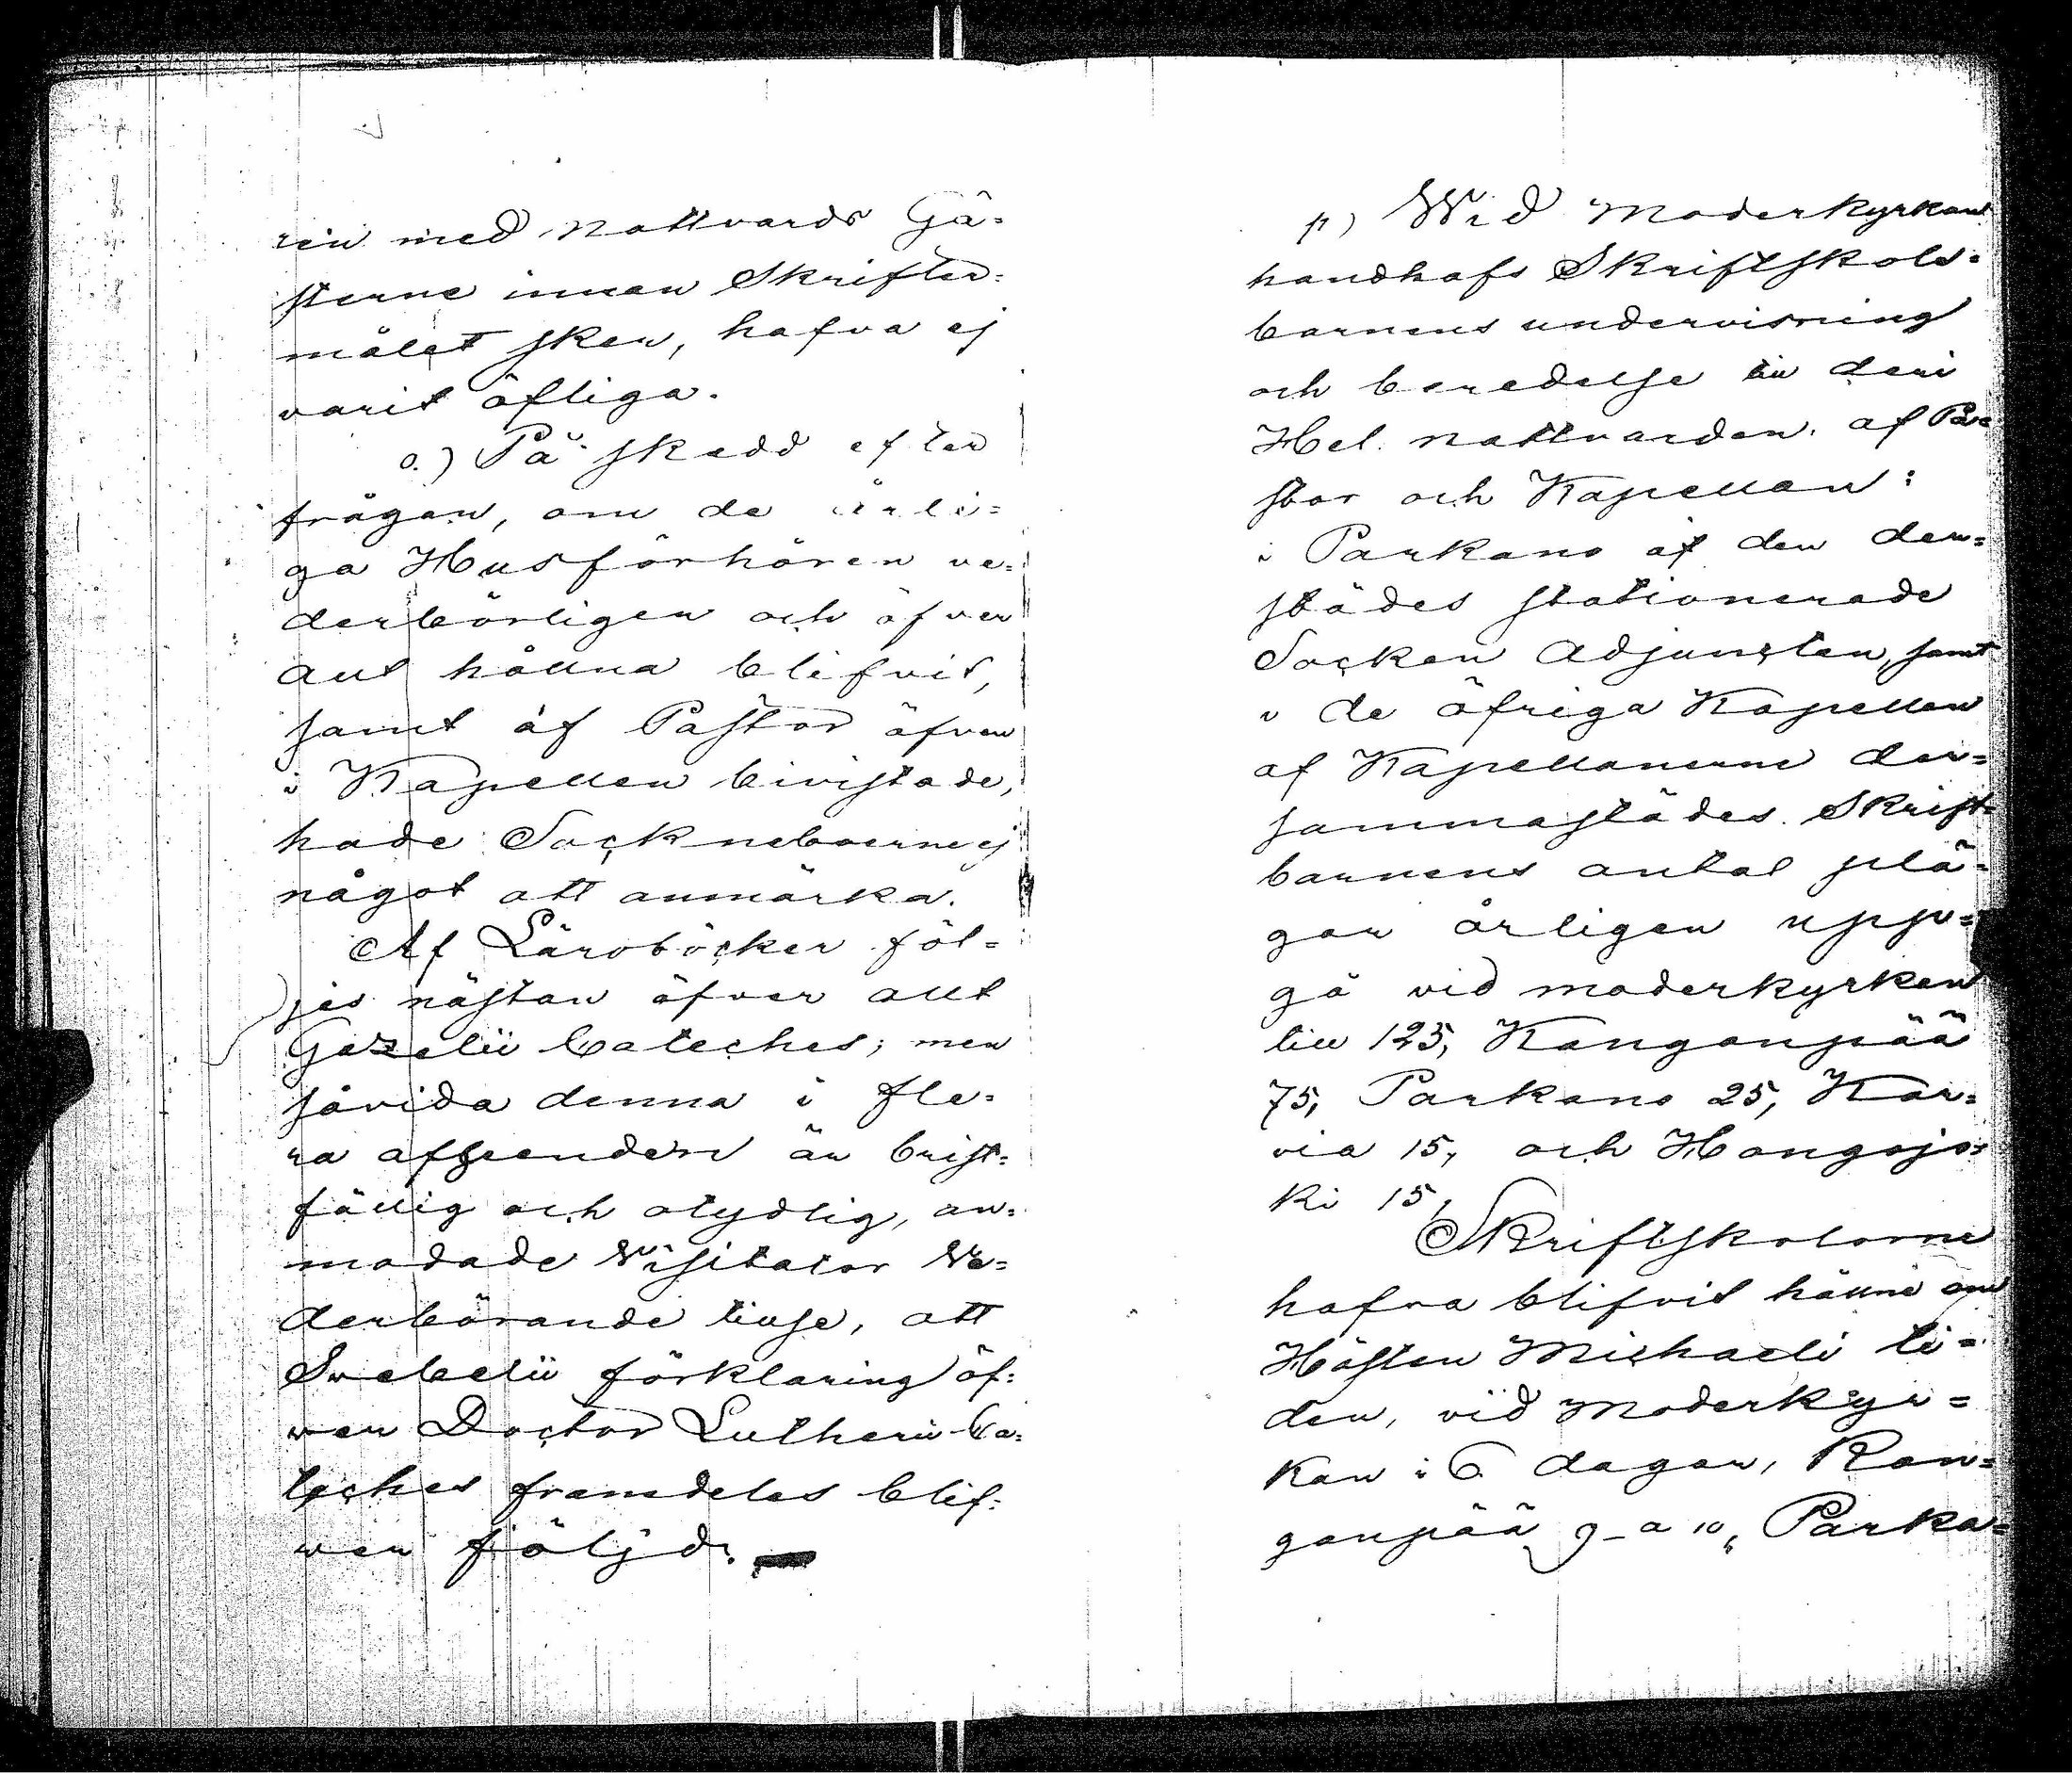 ren med Nattvards Gä=
sterne innan Skrifter=
målet sken, hafva ej
varit öfliga.
o.) På skedd efter
frågan, om de årli=
ga Husförhören ve=
derbörligen och öfver
allt hållna blifvit,
samt af Pastor äfven
i Kapellen bivistade,
hade Sockneboerne ej
något att anmärka.
Af Läroböcker föl=
jes nästan öfver allt
Gezelii Cateches; men
såvida denna i fle=
ra afseenden är brist=
fällig och otydlig, an=
modade Visitator Ve=
derbörande tillse, att
Svebelii förklaring öf=
wer Doctor Lutherii Ca=
teches framdeles blif=
wer följd.
p) Wid Moderkyrkan
handhafs Skriftskols=
barnens undervisning
och beredelse till den
Hel. Nattvarden af Pa=
stor och Kapellan:
i Parkano af den der=
städes stationerade
Socken Adjuncten, samt
i de öfriga Kapellen
af Kapellanerne der=
sammastädes. Skrift=
barnens antal plä=
gar årligen uppe=
gå vid moderkyrkan
till 125, Kanganpää
75, Parkano 25, Kar=
via 15, och Hongojo=
ki 15,
Skriftskolorne
hafva blifvit hållne om
Hösten Michaeli ti=
den, vid Moderkyr=
kan i 6 dagar, Kan=
ganpää 9 a 10, Parka=